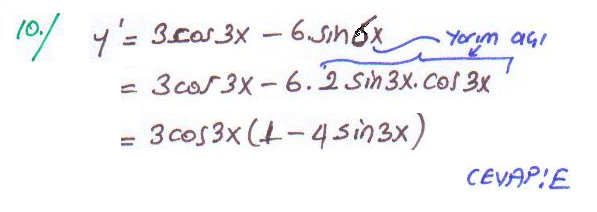 10./ y' = 3cos3x - 6.sin6x Yarım açı
= 3cos3x - 6.2sin3x.cos3x
= 3cos3x(1 - 4sin3x)
CEVAP:E